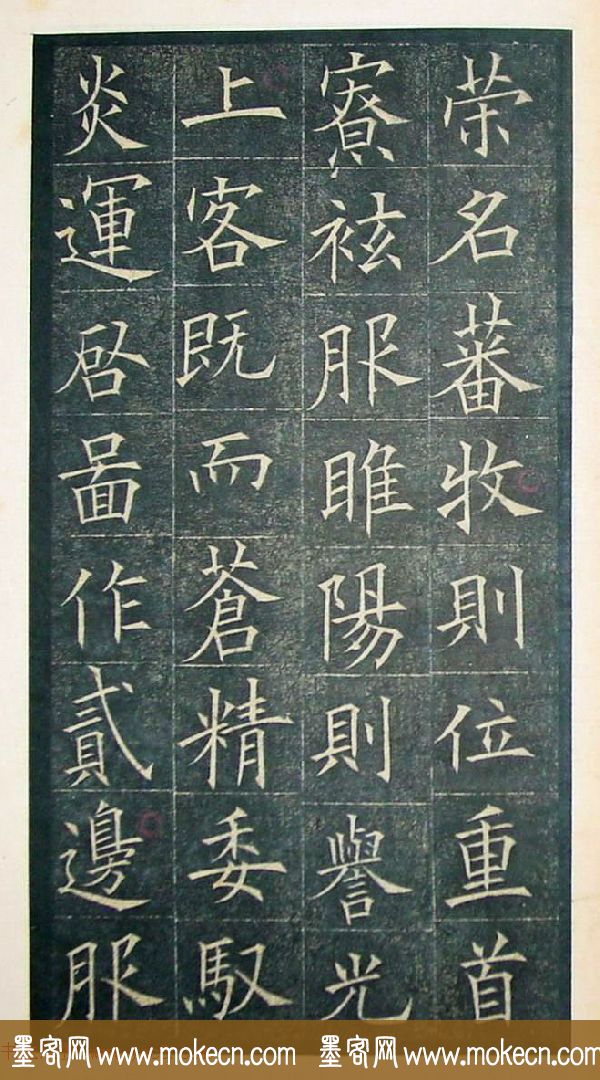 荣名蕃牧則位重首
寮袨服睢陽則譽光
上客既而蒼精委馭
炎運启啚作貳邊服
墨客网 www.mokecn.com 墨客网 www.mokecn.com